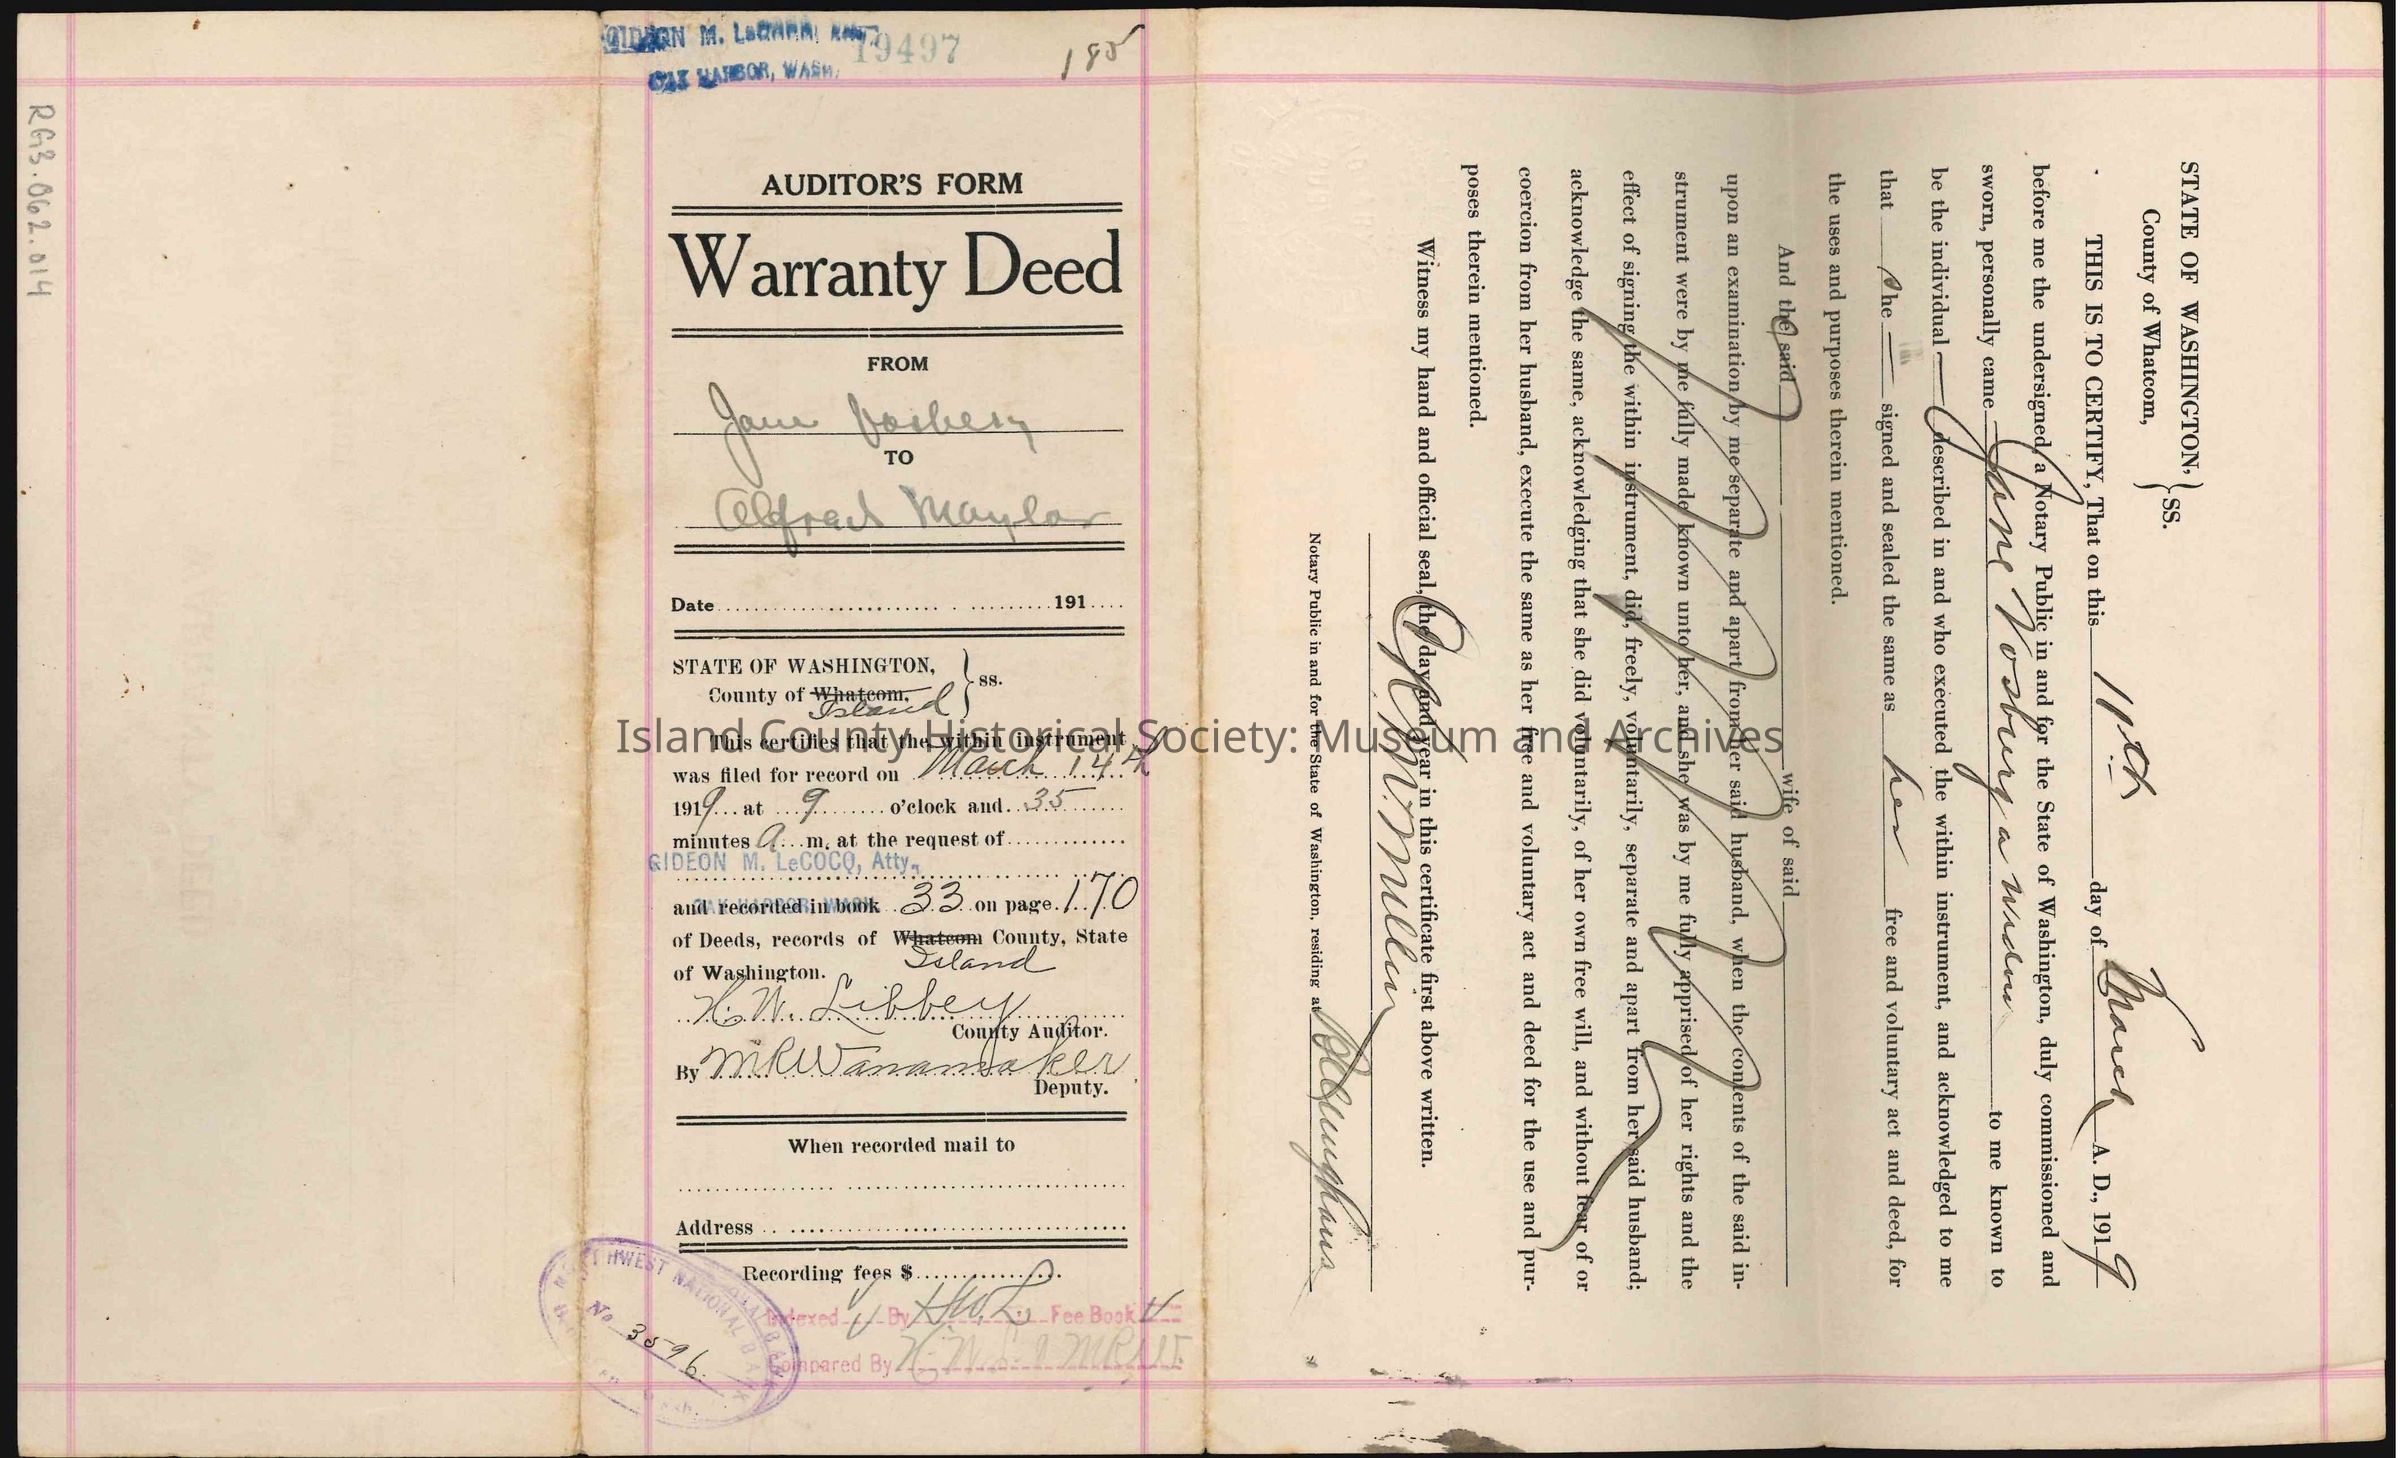 RG3.062.014
GIDEON M. LeCOCQ, Atty.
OAK HARBOR, WASH.
19497
185
AUDITOR'S FORM
Warranty Deed
FROM
Jane Vosbery
TO
Alfred Maylor
Date 191
STATE OF WASHINGTON,
County of Whatcom, } ss.
Island
This certifies that the within instrument
was filed for record on March 14th
1919 at 9 o'clock and 35
minutes A. m. at the request of
GIDEON M. LeCOCQ, Atty.,
OAK HARBOR, WASH.
and recorded in book 33 on page 170
of Deeds, records of Whatcom County, State
Island
of Washington.
H. W. Libbey
County Auditor.
By M R Wanamaker
Deputy.
When recorded mail to
Address
Recording fees $
Indexed By H.W.L. Fee Book
Compared By
NORTHWEST NATIONAL BANK
No 3596.
STATE OF WASHINGTON,
County of Whatcom, } SS.
THIS IS TO CERTIFY, That on this 11th day of March A. D., 1919
before me the undersigned, a Notary Public in and for the State of Washington, duly commissioned and
sworn, personally came Jane Vosbury a widow to me known to
be the individual described in and who executed the within instrument, and acknowledged to me
that she signed and sealed the same as her free and voluntary act and deed, for
the uses and purposes therein mentioned.
And the said wife of said
upon an examination by me separate and apart from her said husband, when the contents of the said in-
strument were by me fully made known unto her, and she was by me fully apprised of her rights and the
effect of signing the within instrument, did, freely, voluntarily, separate and apart from her said husband;
acknowledge the same, acknowledging that she did voluntarily, of her own free will, and without fear of or
coercion from her husband, execute the same as her free and voluntary act and deed for the use and pur-
poses therein mentioned.
Witness my hand and official seal, the day and year in this certificate first above written.
Notary Public in and for the State of Washington, residing at Bellingham
Island County Historical Society: Museum and Archives